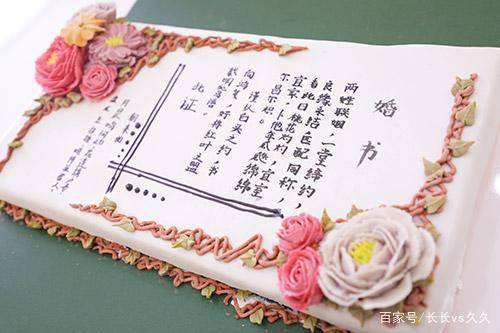 婚书
两姓联姻，一堂缔约，
良缘永结，匹配同称，
看此日桃花灼灼，宜室
宜家，卜他年瓜瓞绵绵，
尔昌尔炽。
谨以白头之约，书
向鸿笺，好将红叶之盟
载明鸳谱。
此证
百家号/长长vs久久